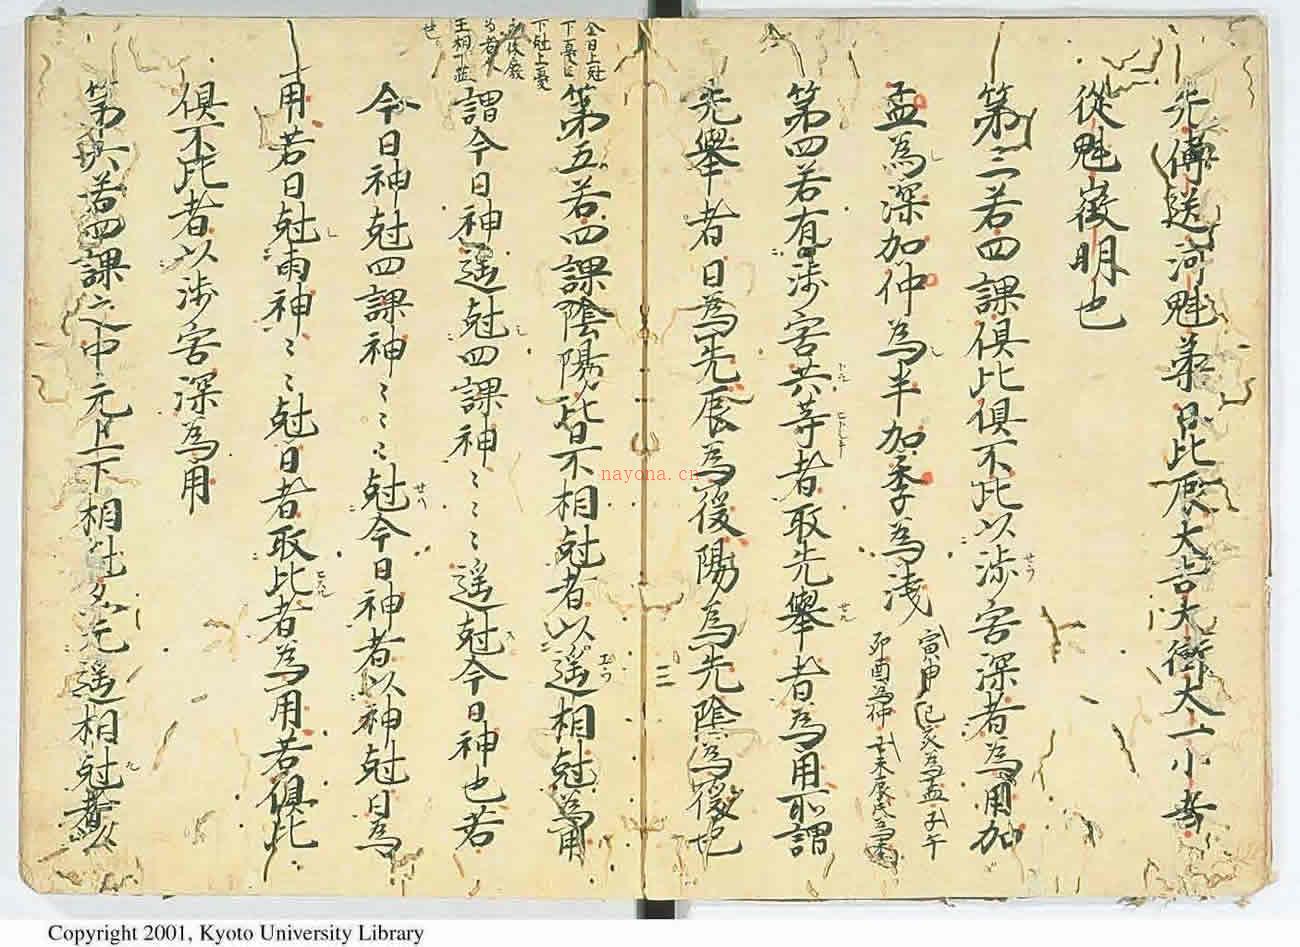 先傳送河魁第日比辰大吉大衝太一小吉
從魁徵明也
第三若四課俱比俱不比以涉害深者為用加
孟為深加仲為半加季為淺
寅申巳亥為孟子午
卯酉為仲丑未辰戌為季
第四若有涉害共等者取先舉者為用所謂
先舉者日為先辰為後陽為先陰為後也
三
第五若四課陰陽皆不相尅者以遥相尅為用
今日上尅
下憂
下尅上憂
王相
謂今日神遥尅四課神〻〻〻遥尅今日神也若
今日神尅四課神〻〻〻尅今日神者以神尅日為
用若日尅兩神〻〻尅日者取比者為用若俱比
俱不比者以涉害深為用
第六若四課之中元上下相尅又元遥相尅者以
nayona.cn
Copyright 2001, Kyoto University Library